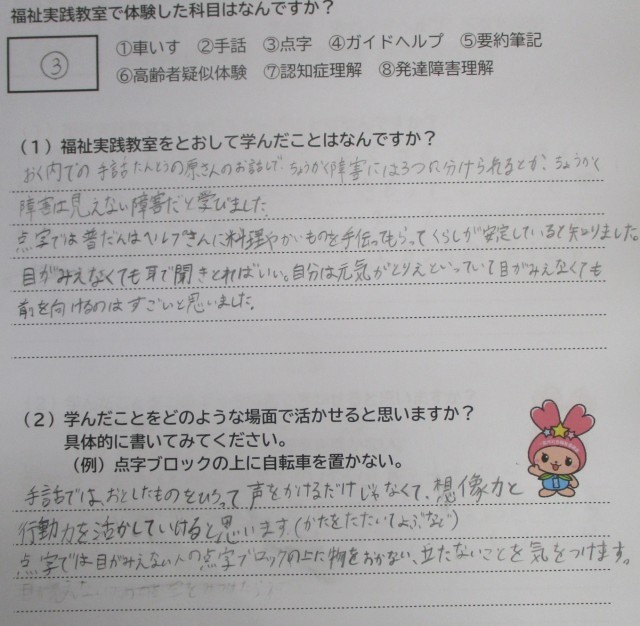 福祉実践教室で体験した科目はなんですか？
③
①車いす ②手話 ③点字 ④ガイドヘルプ ⑤要約筆記
⑥高齢者疑似体験 ⑦認知症理解 ⑧発達障害理解
（1）福祉実践教室をとおして学んだことはなんですか？
おく内での手話たんとうの原さんのお話しで、ちょうかく障害には3つに分けられるとか、ちょうかく
障害は見えない障害だと学びました。
点字では普だんはヘルプさんに料理やかいものを手伝ってもらってくらしが安定していると知りました。
目がみえなくても耳で聞きとればいい。自分は元気がとりえといっていて目がみえなくても
前を向けるのはすごいと思いました。
（2）学んだことをどのような場面で活かせると思いますか？
具体的に書いてみてください。
（例）点字ブロックの上に自転車を置かない。
手話では、おとしたものをひろって声をかけるだけじゃなくて、想像力と
行動力を活かしていけると思います。（かたをたたいてよぶなど）
点字では目がみえない人の点字ブロックの上に物をおかない、立たないことを気をつけます。